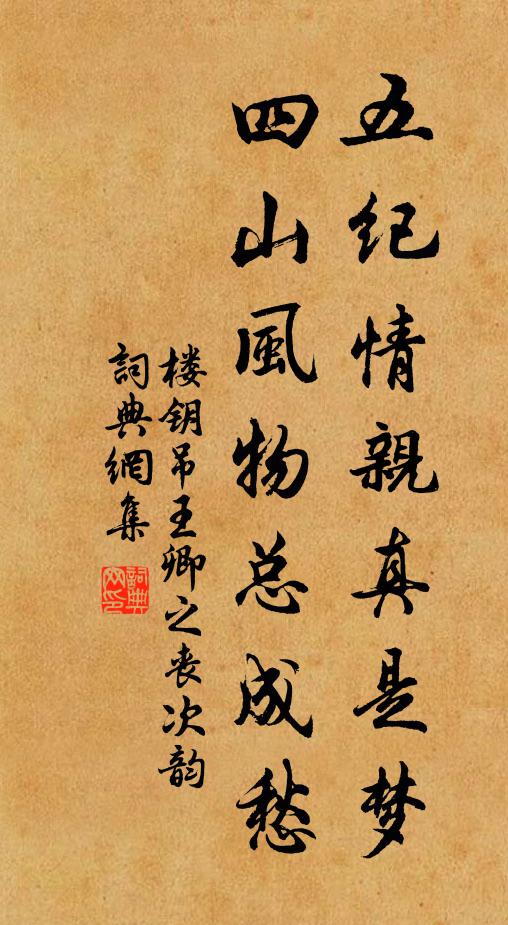 五纪情親真是梦
四山風物总成愁
楼钥吊王卿之丧次韵
詞典網集
詞典网印